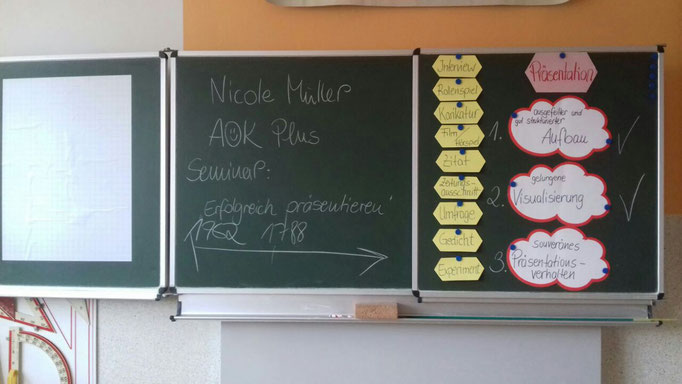 Nicole Müller
AOK Plus
Seminar:
„Erfolgreich präsentieren"
1762 1788
Interview
Rollenspiel
Karikatur
Film Hörspiel
Zitat
Zeitungs-
ausschnitt
Umfrage
Gedicht
Experiment
Präsentation
1.
ausgefeilter und
gut strukturierter
Aufbau
2.
gelungene
Visualisierung
3.
souveränes
Präsentations-
verhalten